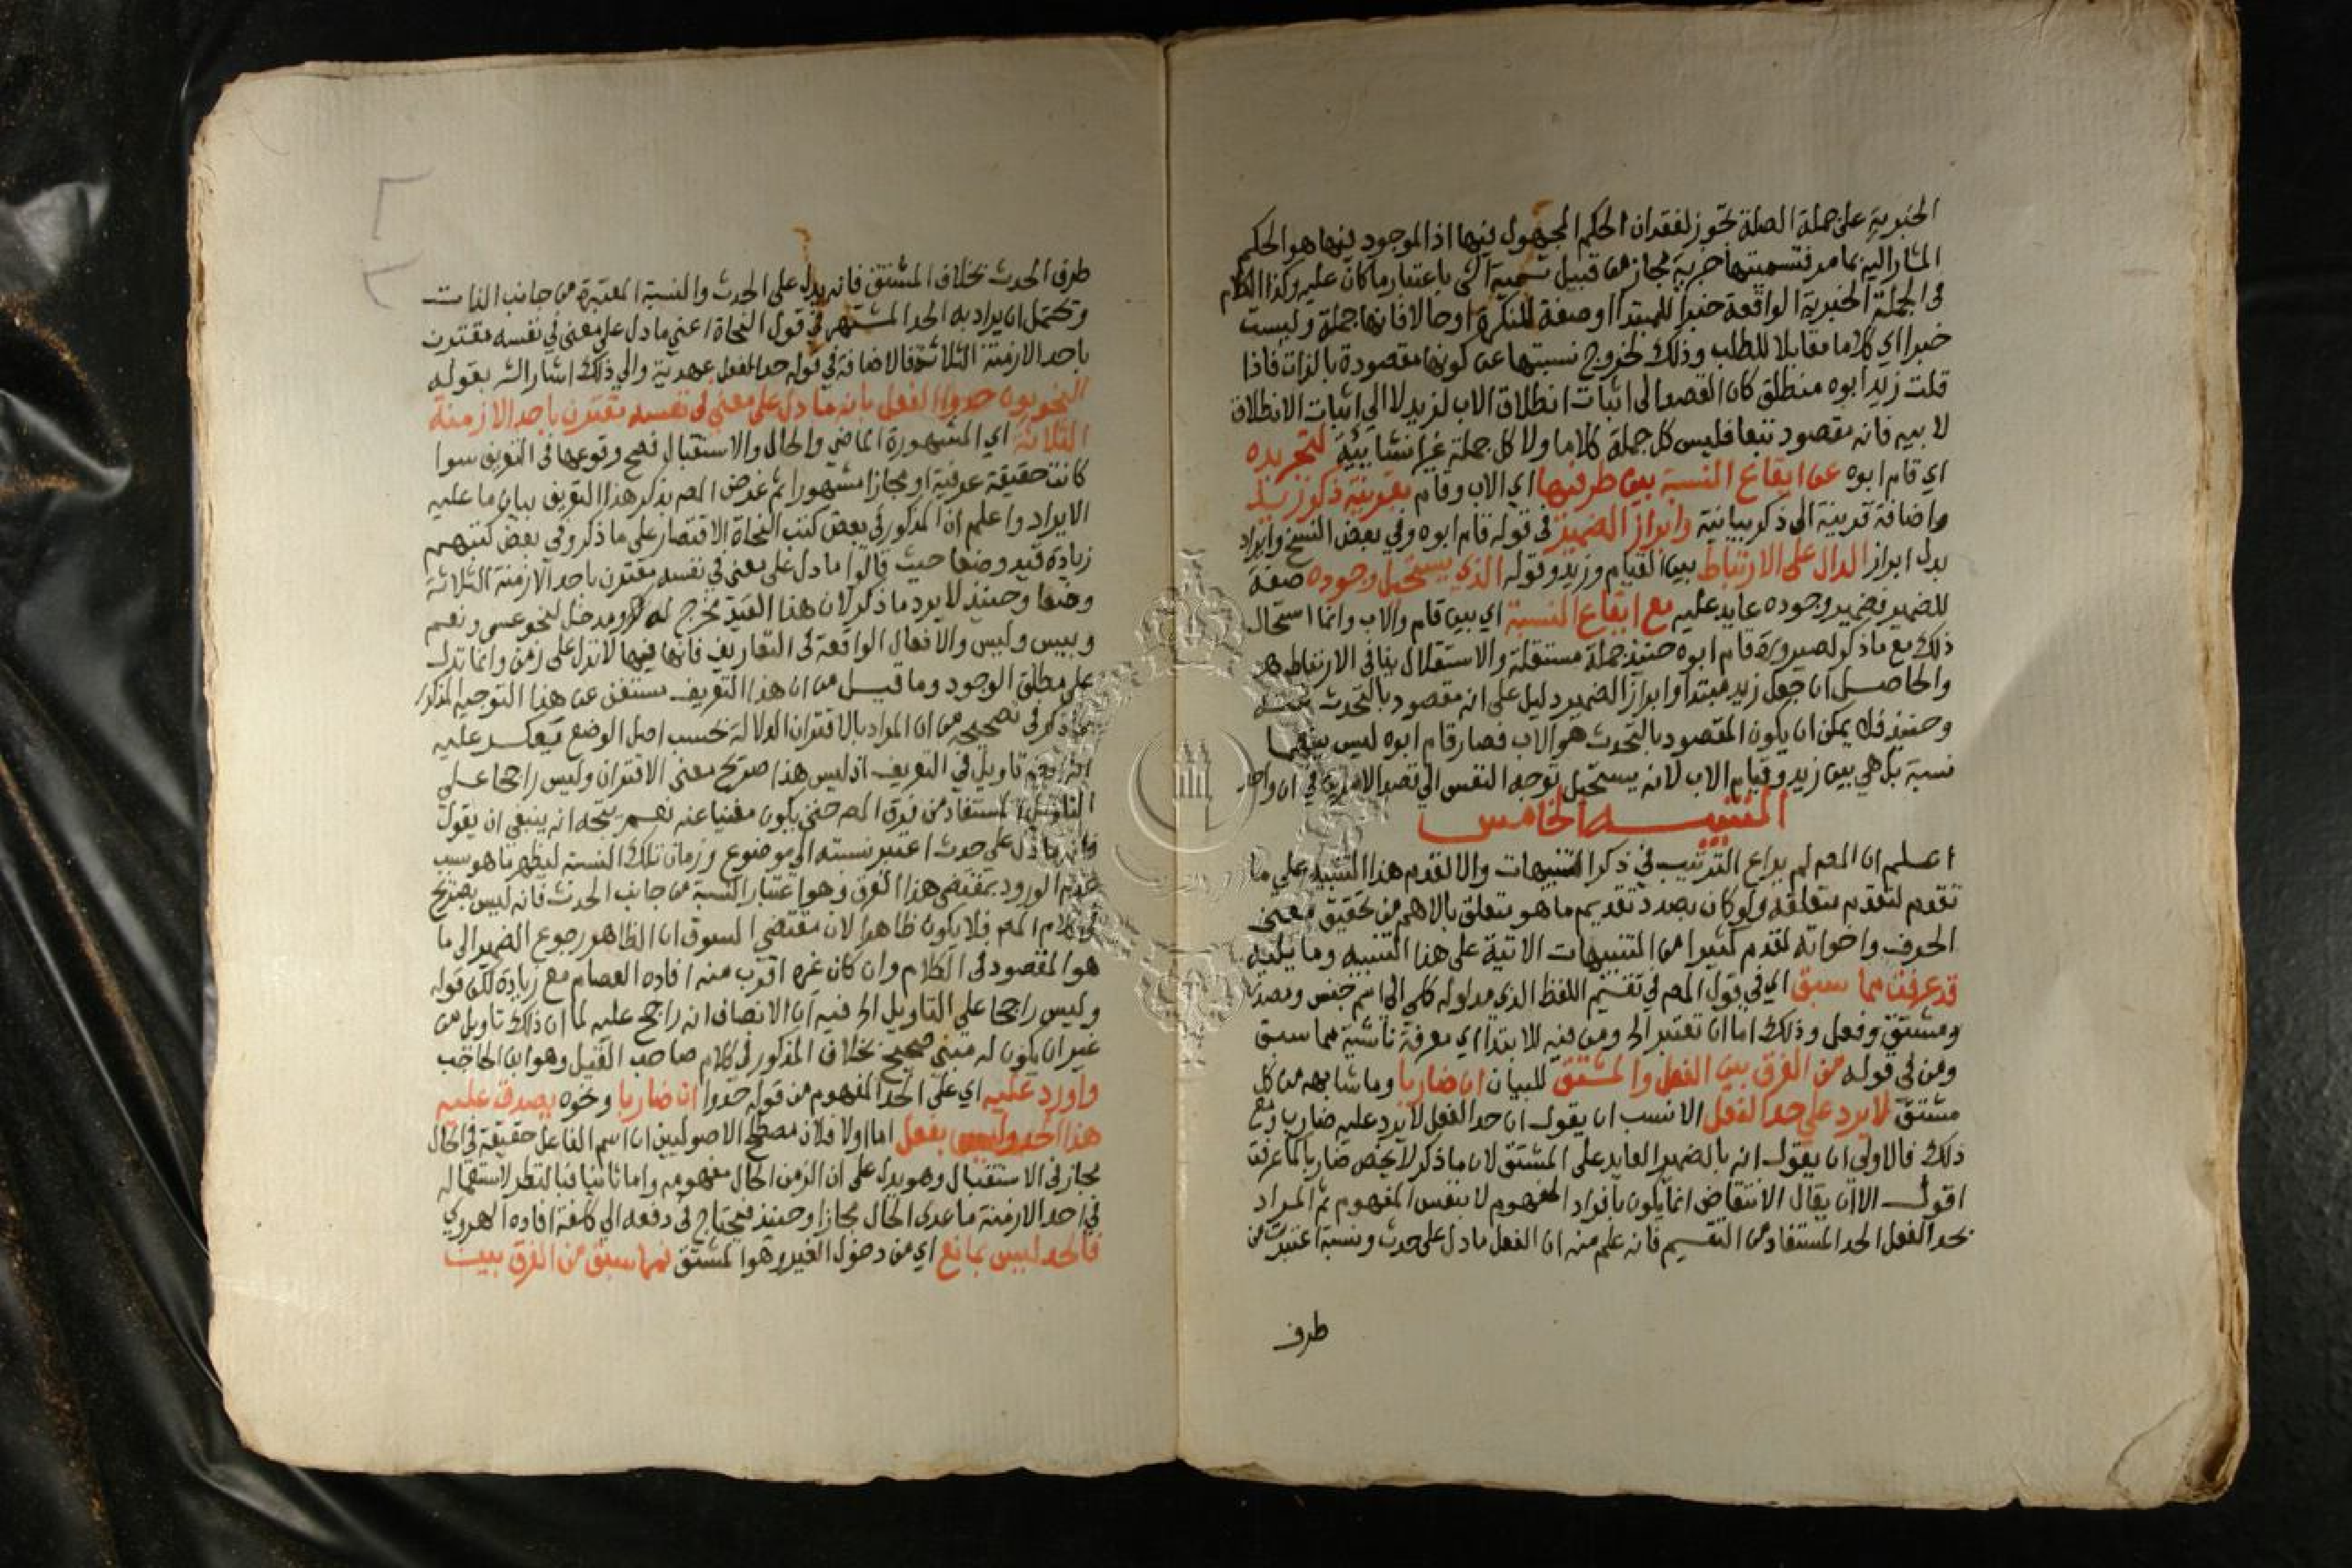 الخبرية على جملة الصلة تجوز لفقدان الحكم المجهول فيها اذ الموجود فيها هو الحكم
المشار اليه بما مر فتسميتها خبرية مجاز من قبيل تسمية الشي باعتبار ما كان عليه وكذا الكلام
في الجملة الخبرية الواقعة خبرا للمبتدا او صفة للنكرة او حالا فانها جملة وليست
خبرا اي كلاما مقابلا للطلب وذلك لخروج نسبتها عن كونها مقصودة بالذات فاذا
قلت زيد ابوه منطلق كان القصد الى اثبات انطلاق الاب لزيد لا الى اثبات الانطلاق
لابيه فانه مقصود تبعا فليس كل جملة كلاما ولا كل جملة غير انشايية لتجريده
اي قام ابوه عن ايقاع النسبة بين طرفيها اي الاب وقام بقرينة ذكر زيد
واضافة قرينة الى ذكر بيانية وابراز الضمير في قوله قام ابوه وفي بعض النسخ وايراد
بدل ابراز الدال على الارتباط بين القيام وزيد وقوله الذي يستحيل وجوده صفة
للضمير فضمير وجوده عايد عليه مع ايقاع النسبة اي بين قام والاب وانما استحال
ذلك مع ما ذكر لصيرورة قام ابوه حينئذ جملة مستقلة والاستقلال ينافي الارتباط
والحاصل ان جعل زيد مبتدا وابراز الضمير دليل على انه مقصود بالتحدث عنه
وحينئذ فلا يمكن ان يكون المقصود بالتحدث هو الاب فصار قام ابوه ليس بينهما
نسبة بل هي بين زيد وقيام الاب لانه يستحيل توجه النفس الى قصد الامرين في ان واحد
التنبيه الخامس
اعلم ان المصم لم يراع الترتيب في ذكر التنبيهات والا لقدم هذا التنبيه على ما
تقدم لتقدم متعلقه ولو كان بصدد تقديم ما هو متعلق بالاهم من تحقيق معنى
الحرف واخواته لقدم كثيرا من التنبيهات الاتية على هذا التنبيه وما يليه
قد عرفت مما سبق اي في قول المصم في تقسيم اللفظ الذي مدلوله كلي الى اسم جنس ومصدر
ومشتق وفعل وذلك اما ان تعتبر الخ ومن فيه للابتدا اي معرفة ناشية مما سبق
ومن في قوله من الفرق بين الفعل والمشتق للبيان ان ضاربا وما شابهه من كل
مشتق لا يرد على حد الفعل الانسب ان يقول ان حد الفعل لا يرد عليه ضارب ومع
ذلك فالاولى ان يقول انه بالضمير العايد على المشتق لان ما ذكر لا يختص ضاربا كما عرفت
اقول الا ان يقال الانتقاض انما يكون بافراد المفهوم لا بنفس المفهوم ثم المراد
بحد الفعل الحد المستفاد من التقسيم فانه علم منه ان الفعل ما دل على حدث ونسبة اعتبرت من
طرف
طرف الحدث بخلاف المشتق فانه يدل على الحدث والنسبة المعتبرة من جانب الذات
وتحتمل ان يراد به الحد المشتهر في قول النحاة اعني ما دل على معنى في نفسه مقترن
باحد الازمنة الثلاثة فالاضافة في قوله حد الفعل عهدية والى ذلك اشار الش بقوله
النحويون حدوا الفعل بانه ما دل على معنى في نفسه مقترن باحد الازمنة
الثلاثة اي المشهورة الماضي والحال والاستقبال فصح وقوعها في التعريف سوا
كانت حقيقة عرفية او مجازا مشهورا ثم غرض المصم بذكر هذا التعريف بيان ما عليه
الايراد واعلم ان المذكور في بعض كتب النحاة الاقتصار على ما ذكر وفي بعض كتبهم
زيادة قيد وضعا حيث قالوا ما دل على معنى في نفسه مقترن باحد الازمنة الثلاثة
وضعا وحينئذ لا يرد ما ذكر لان هذا القيد مخرج له ومدخل لنحو عسى ونعم
وبيس وليس والافعال الواقعة في التعاريف فانها فيها لا تدل على زمن وانما تدل
على مطلق الوجود وما قيل من ان هذا التعريف مستغن عن هذا التوجيه المذكور
بما ذكر في تصحيحه من ان المراد بالاقتران الدلالة بحسب اصل الوضع فيعكر عليه
تاويل في التعريف اذ ليس هذا صريح معنى الاقتران وليس راجحا على
التاويل المستفاد من فرق المصم حتى يكون مغنيا عنه نعم يتجه انه ينبغي ان يقول
ما دل على حدث اعتبر نسبته الى موضوع وزمان تلك النسبة ليظهر ما هو سبب
عدم الورود بمقتضى هذا الفرق وهو اعتبار النسبة من جانب الحدث فانه ليس بصريح
في كلام المصم فلا يكون ظاهرا لان مقتضى السوق ان الظاهر رجوع الضمير الى ما
هو المقصود في الكلام وان كان غيره اقرب منه افاده العصام مع زيادة لكن قوله
وليس راجحا على التاويل الخ فيه ان الانصاف انه راجح عليه لما ان ذلك تاويل من
غير ان يكون له مبنى صحيح بخلاف المذكور في كلام صاحب القيل وهو ابن الحاجب
واورد عليه اي على الحد المفهوم من قوله حدوا ان ضاربا ونحوه يصدق عليه
هذا الحد وليس بفعل اما اولا فلان مصطلح الاصوليين ان اسم الفاعل حقيقة في الحال
مجاز في الاستقبال وهو يدل على ان الزمن الحال مفهومه واما ثانيا فبالنظر لاستعماله
في احد الازمنة ما عدى الحال مجازا وحينئذ فيحتاج في دفعه الى كلفة افاده الهروي
فالحد ليس بمانع اي من دخول الغير وهو المشتق فما سبق من الفرق بين